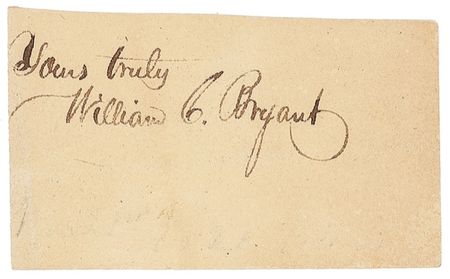 Yours truly
William C. Bryant